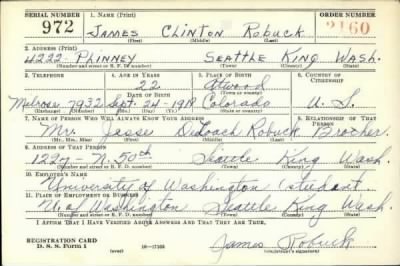 SERIAL NUMBER 1. NAME (Print) ORDER NUMBER
972 JAMES CLINTON ROBUCK 2160
(First) (Middle) (Last)
2. ADDRESS (Print)
4222 PHINNEY SEATTLE KING WASH.
(Number and street or R. F. D. number) (Town) (County) (State)
3. TELEPHONE 4. AGE IN YEARS 5. PLACE OF BIRTH 6. COUNTRY OF CITIZENSHIP
22 Atwood
DATE OF BIRTH (Town or county)
Melrose 7932 Sept. 24-1918 Colorado U. S.
(Exchange) (Number) (Mo.) (Day) (Yr.) (State or country)
7. NAME OF PERSON WHO WILL ALWAYS KNOW YOUR ADDRESS 8. RELATIONSHIP OF THAT PERSON
Mr. Jesse DeLoach Robuck Brother
(Mr., Mrs., Miss) (First) (Middle) (Last)
9. ADDRESS OF THAT PERSON
1227 - N. 50th Seattle King Wash.
(Number and street or R. F. D. number) (Town) (County) (State)
10. EMPLOYER'S NAME
University of Washington student
11. PLACE OF EMPLOYMENT OR BUSINESS
U. of Washington Seattle King Wash.
(Number and street or R. F. D. number) (Town) (County) (State)
I AFFIRM THAT I HAVE VERIFIED ABOVE ANSWERS AND THAT THEY ARE TRUE.
REGISTRATION CARD
D. S. S. Form 1 (over) James Robuck
(Registrant's signature)